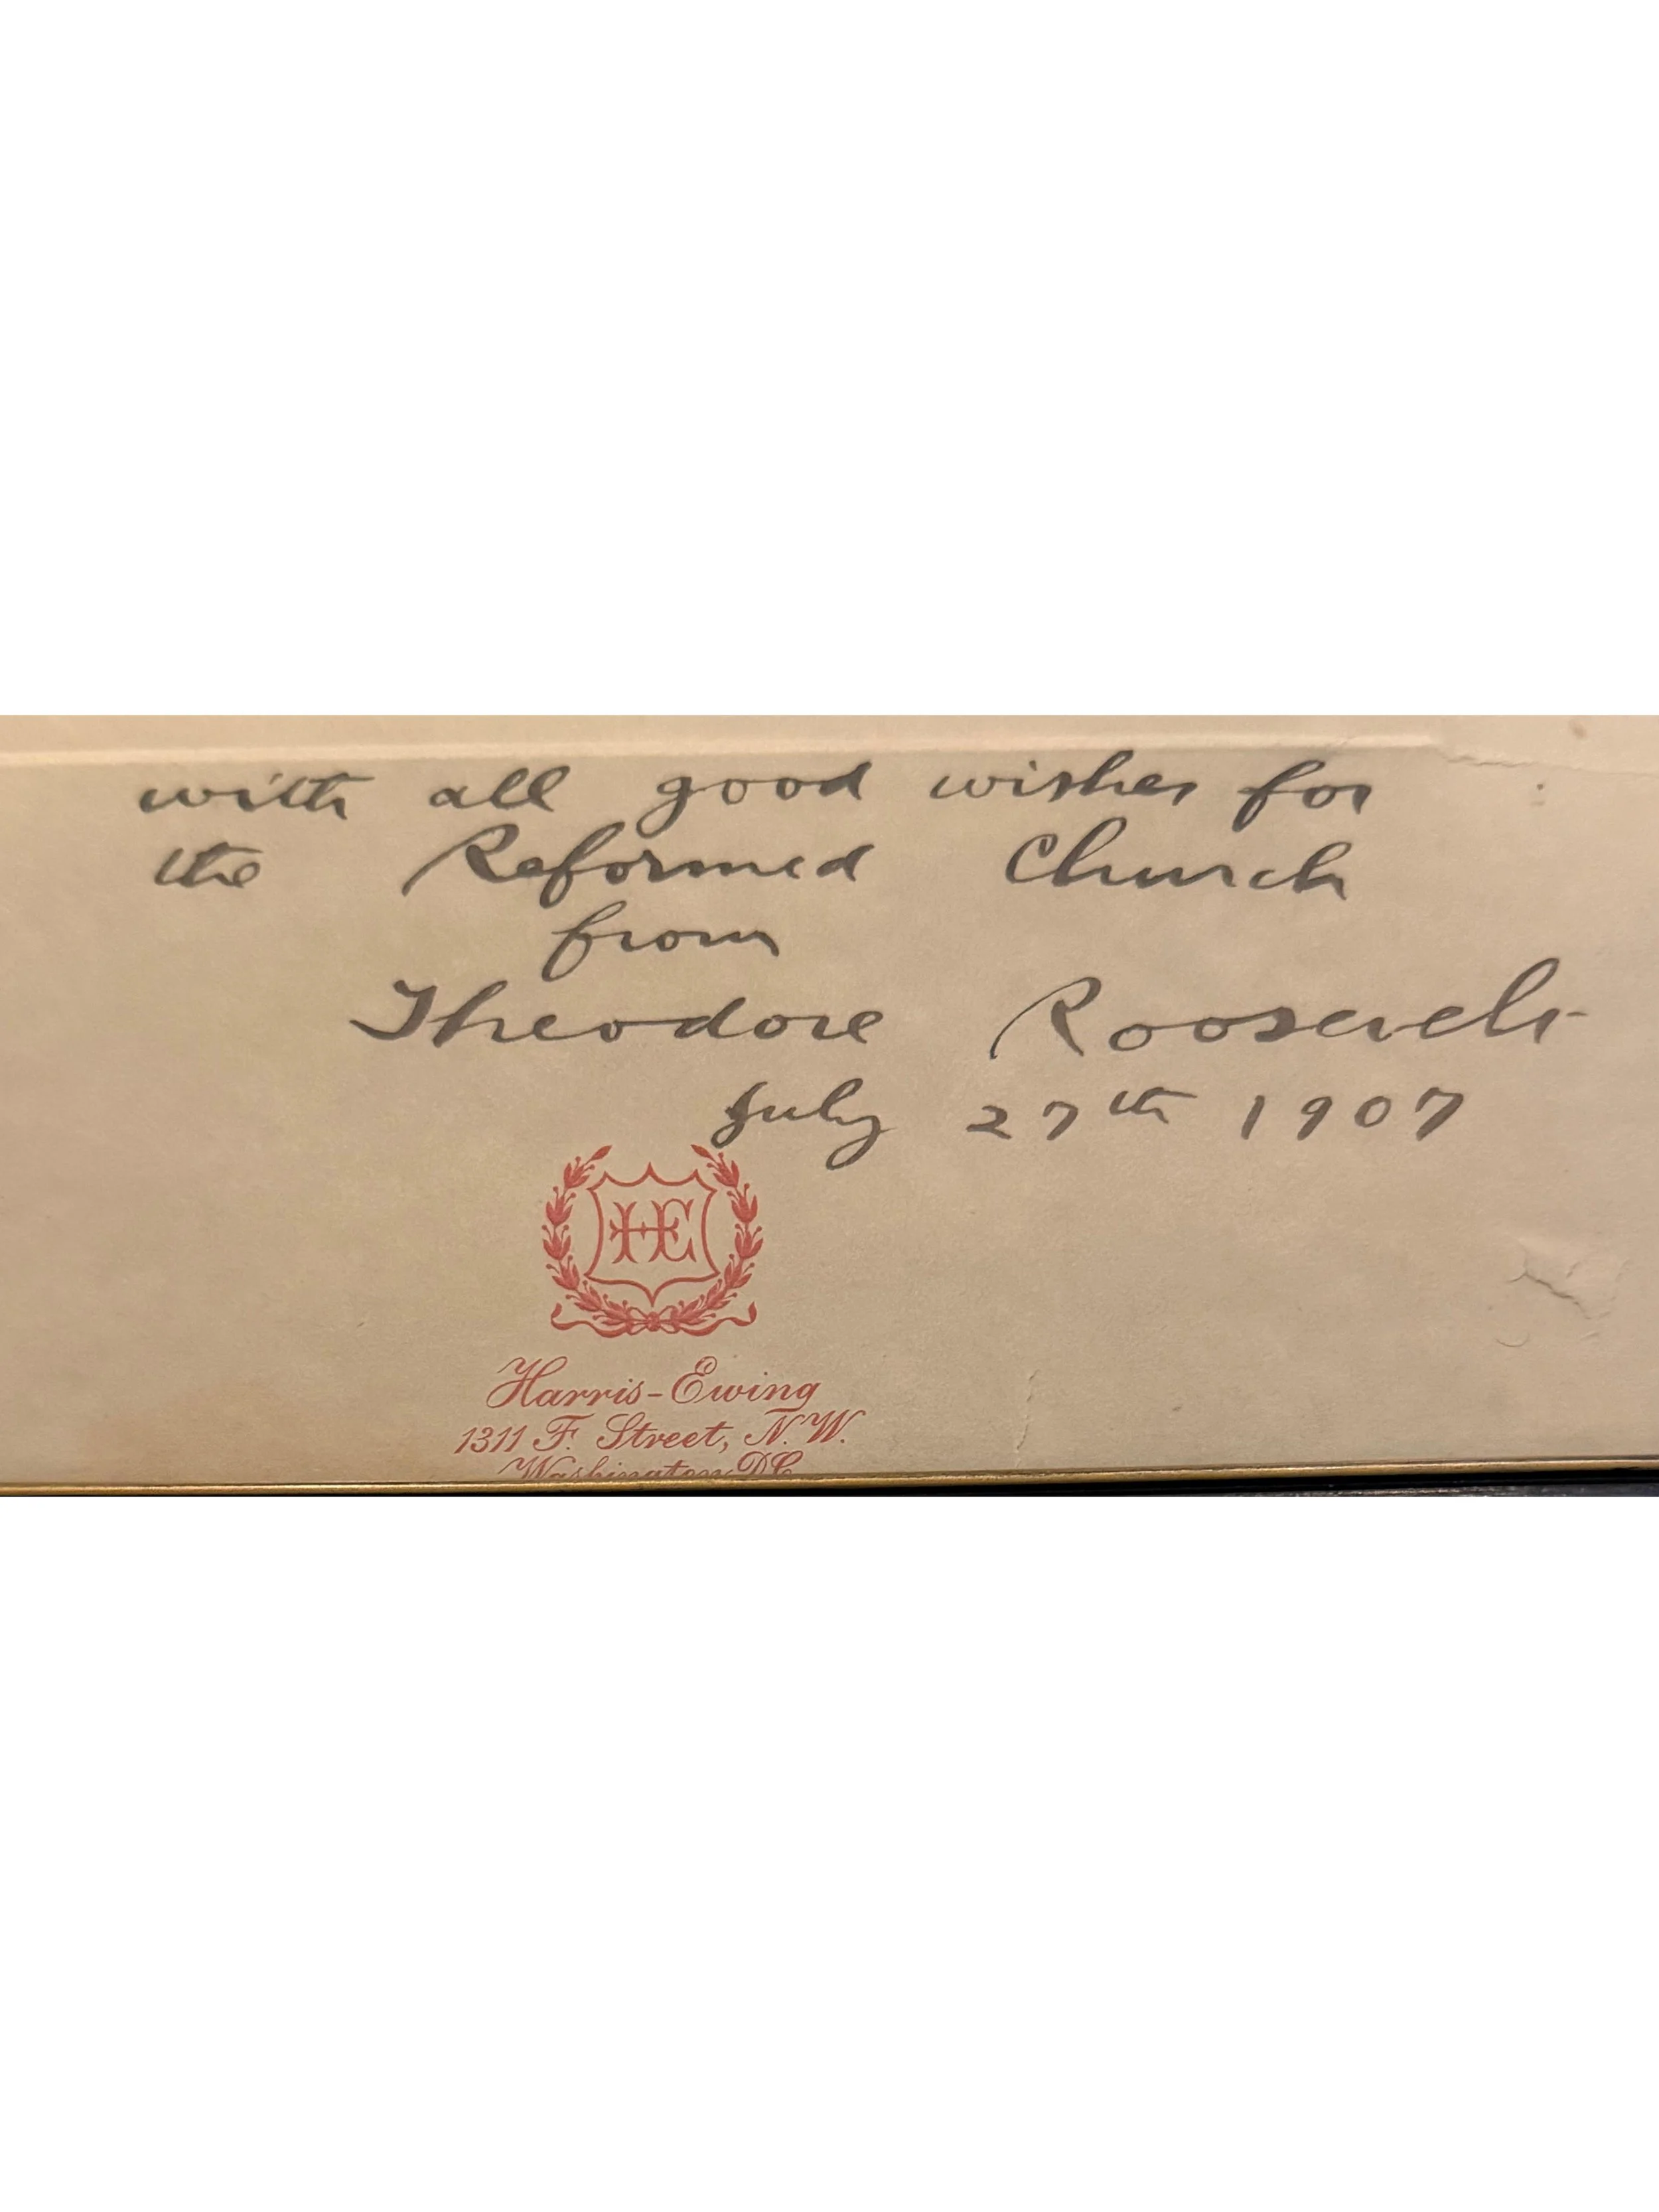 with all good wishes for
the Reformed Church
from
Theodore Roosevelt
July 27th 1907
HE
Harris-Ewing
1311 F. Street, N.W.
Washington D.C.